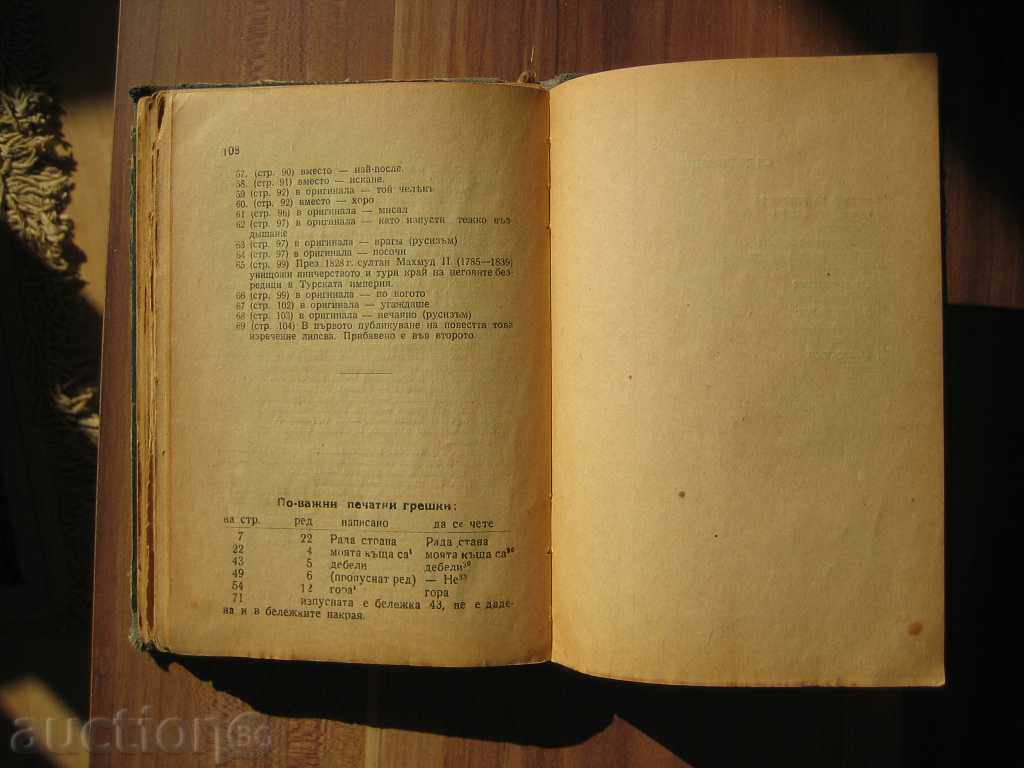 108
57. (стр. 90) вместо — най-после.
58. (стр. 91) вместо — искане.
59 (стр. 92) в оригинала — той челѣкъ
60. (стр. 92) вместо — хоро
61 (стр. 96) в оригинала — мисал
62 (стр. 97) в оригинала — като изпусти тежко въз
дышание
63 (стр. 97) в оригинала — врагы (русизъм)
64 (стр. 97) в оригинала — посочи
65 (стр. 99) През 1828 г. султан Махмуд II (1785—1839)
унищожи яничерството и тури край на неговите без-
редици в Турската империя.
66 (стр. 99) в оригинала — по когото
67 (стр. 102) в оригинала — угаждаше
68 (стр. 103) в оригинала — нечаяно (русизъм)
69 (стр. 104) В първото публикуване на повестта това
изречение липсва. Прибавено е във второто
По-важни печатни грешки:
на стр. ред написано да се чете
7 22 Рада страна Рада стана
22 4 моята къща са¹ моята къща са
43 5 дебели дебели
49 6 (пропуснат ред) — Не
54 12 гора¹ гора
71 изпусната е бележка 43, не е даде-
на и в бележките накрая.
auction BG